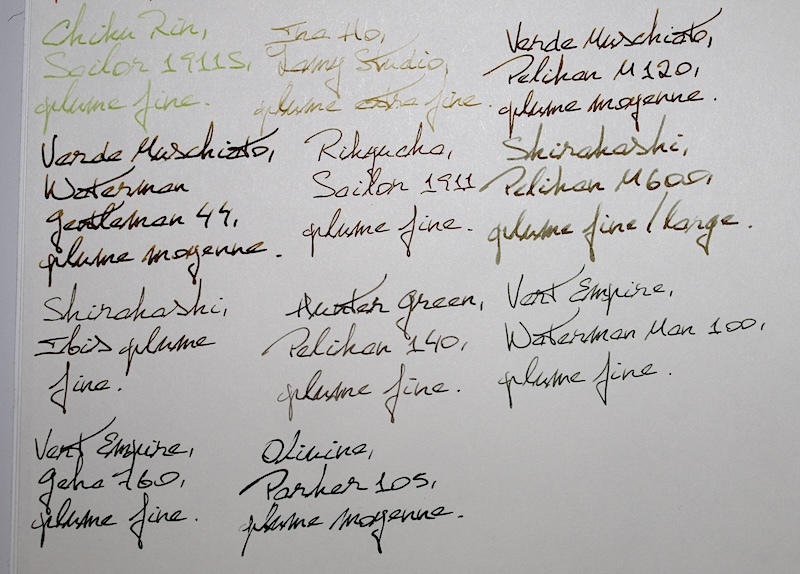 Chiku Rin,
Sailor 1911S,
plume fine.
Ina Ho,
Lamy Studio,
plume extra fine.
Verde Muschiato,
Pelikan M120,
plume moyenne.
Verde Muschiato,
Waterman
Gentleman 44,
plume moyenne.
Rikyucha,
Sailor 1911
plume fine.
Shirakashi,
Pelikan M600,
plume fine/large.
Shirakashi,
Ibis plume
fine.
Hunter Green,
Pelikan 140,
plume fine.
Vert Empire,
Waterman Man 100,
plume fine.
Vert Empire,
Geha 760,
plume fine.
Olivine,
Parker 105,
plume moyenne.